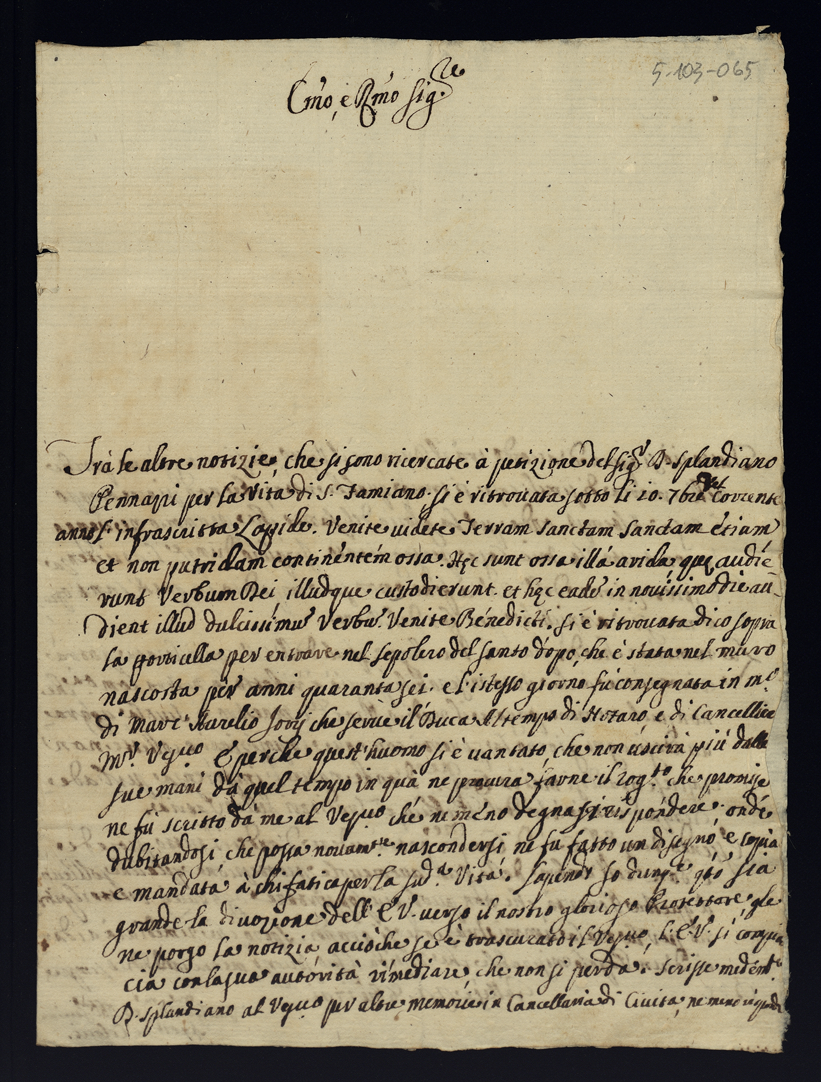 5-103-065
Emo, e Rmo Sig.re
Trà le altre notizie, che si sono ricercate à petizione del Sig.r D. Splandiano
Pennazzi per la Vita di S. Famiano. si è ritrovata sotto li 20. 7bre corrente
anno l' infrascritta Lapide. Venite videte Terram sanctam sanctam etiam
et non putridam continentem ossa. Hęc sunt ossa illa arida quę audie
runt Verbum Dei illudque custodierunt. et hęc eadē in novissimo die au=
dient illud dulcissimū Verbū Venite Benedicti. si è ritrovata dico sopra
la porticella per entrare nel sepolcro del santo dopo, che è stata nel muro
nascosta per anni quaranta sei. e l'istesso giorno fù consegnata in m.o
di Marc' Aurelio Jovij che serve il Duca Altemps di Notaro, e di Cancelliere
M.r Vesc.uo E perche quest'huomo si è vantato, che non uscirà più dalle
sue mani dà quel tempo in quà ne procura farne il rog.to che promise
ne fù scritto dà me al Vesc.uo che ne meno degnasi rispondere. onde
dubitandosi, che possa novam.te nascondersi ne fù fatto un disegno, e copia
e mandata à chi fatica per la sud.a Vita. Sapendo Io dunq.e q.to sia
grande la divozione dell' E.V. verso il nostro glorioso Protettore gle
ne porgo la notizia acciòche se è trascurato il Vesc.uo, l' E.V. si compia
cia con la sua autorità rimediare, che non si perda. Scrisse medem.te
D. Splandiano al Vesc.uo per altre memorie in Cancellaria di Civita, ne meno rispose